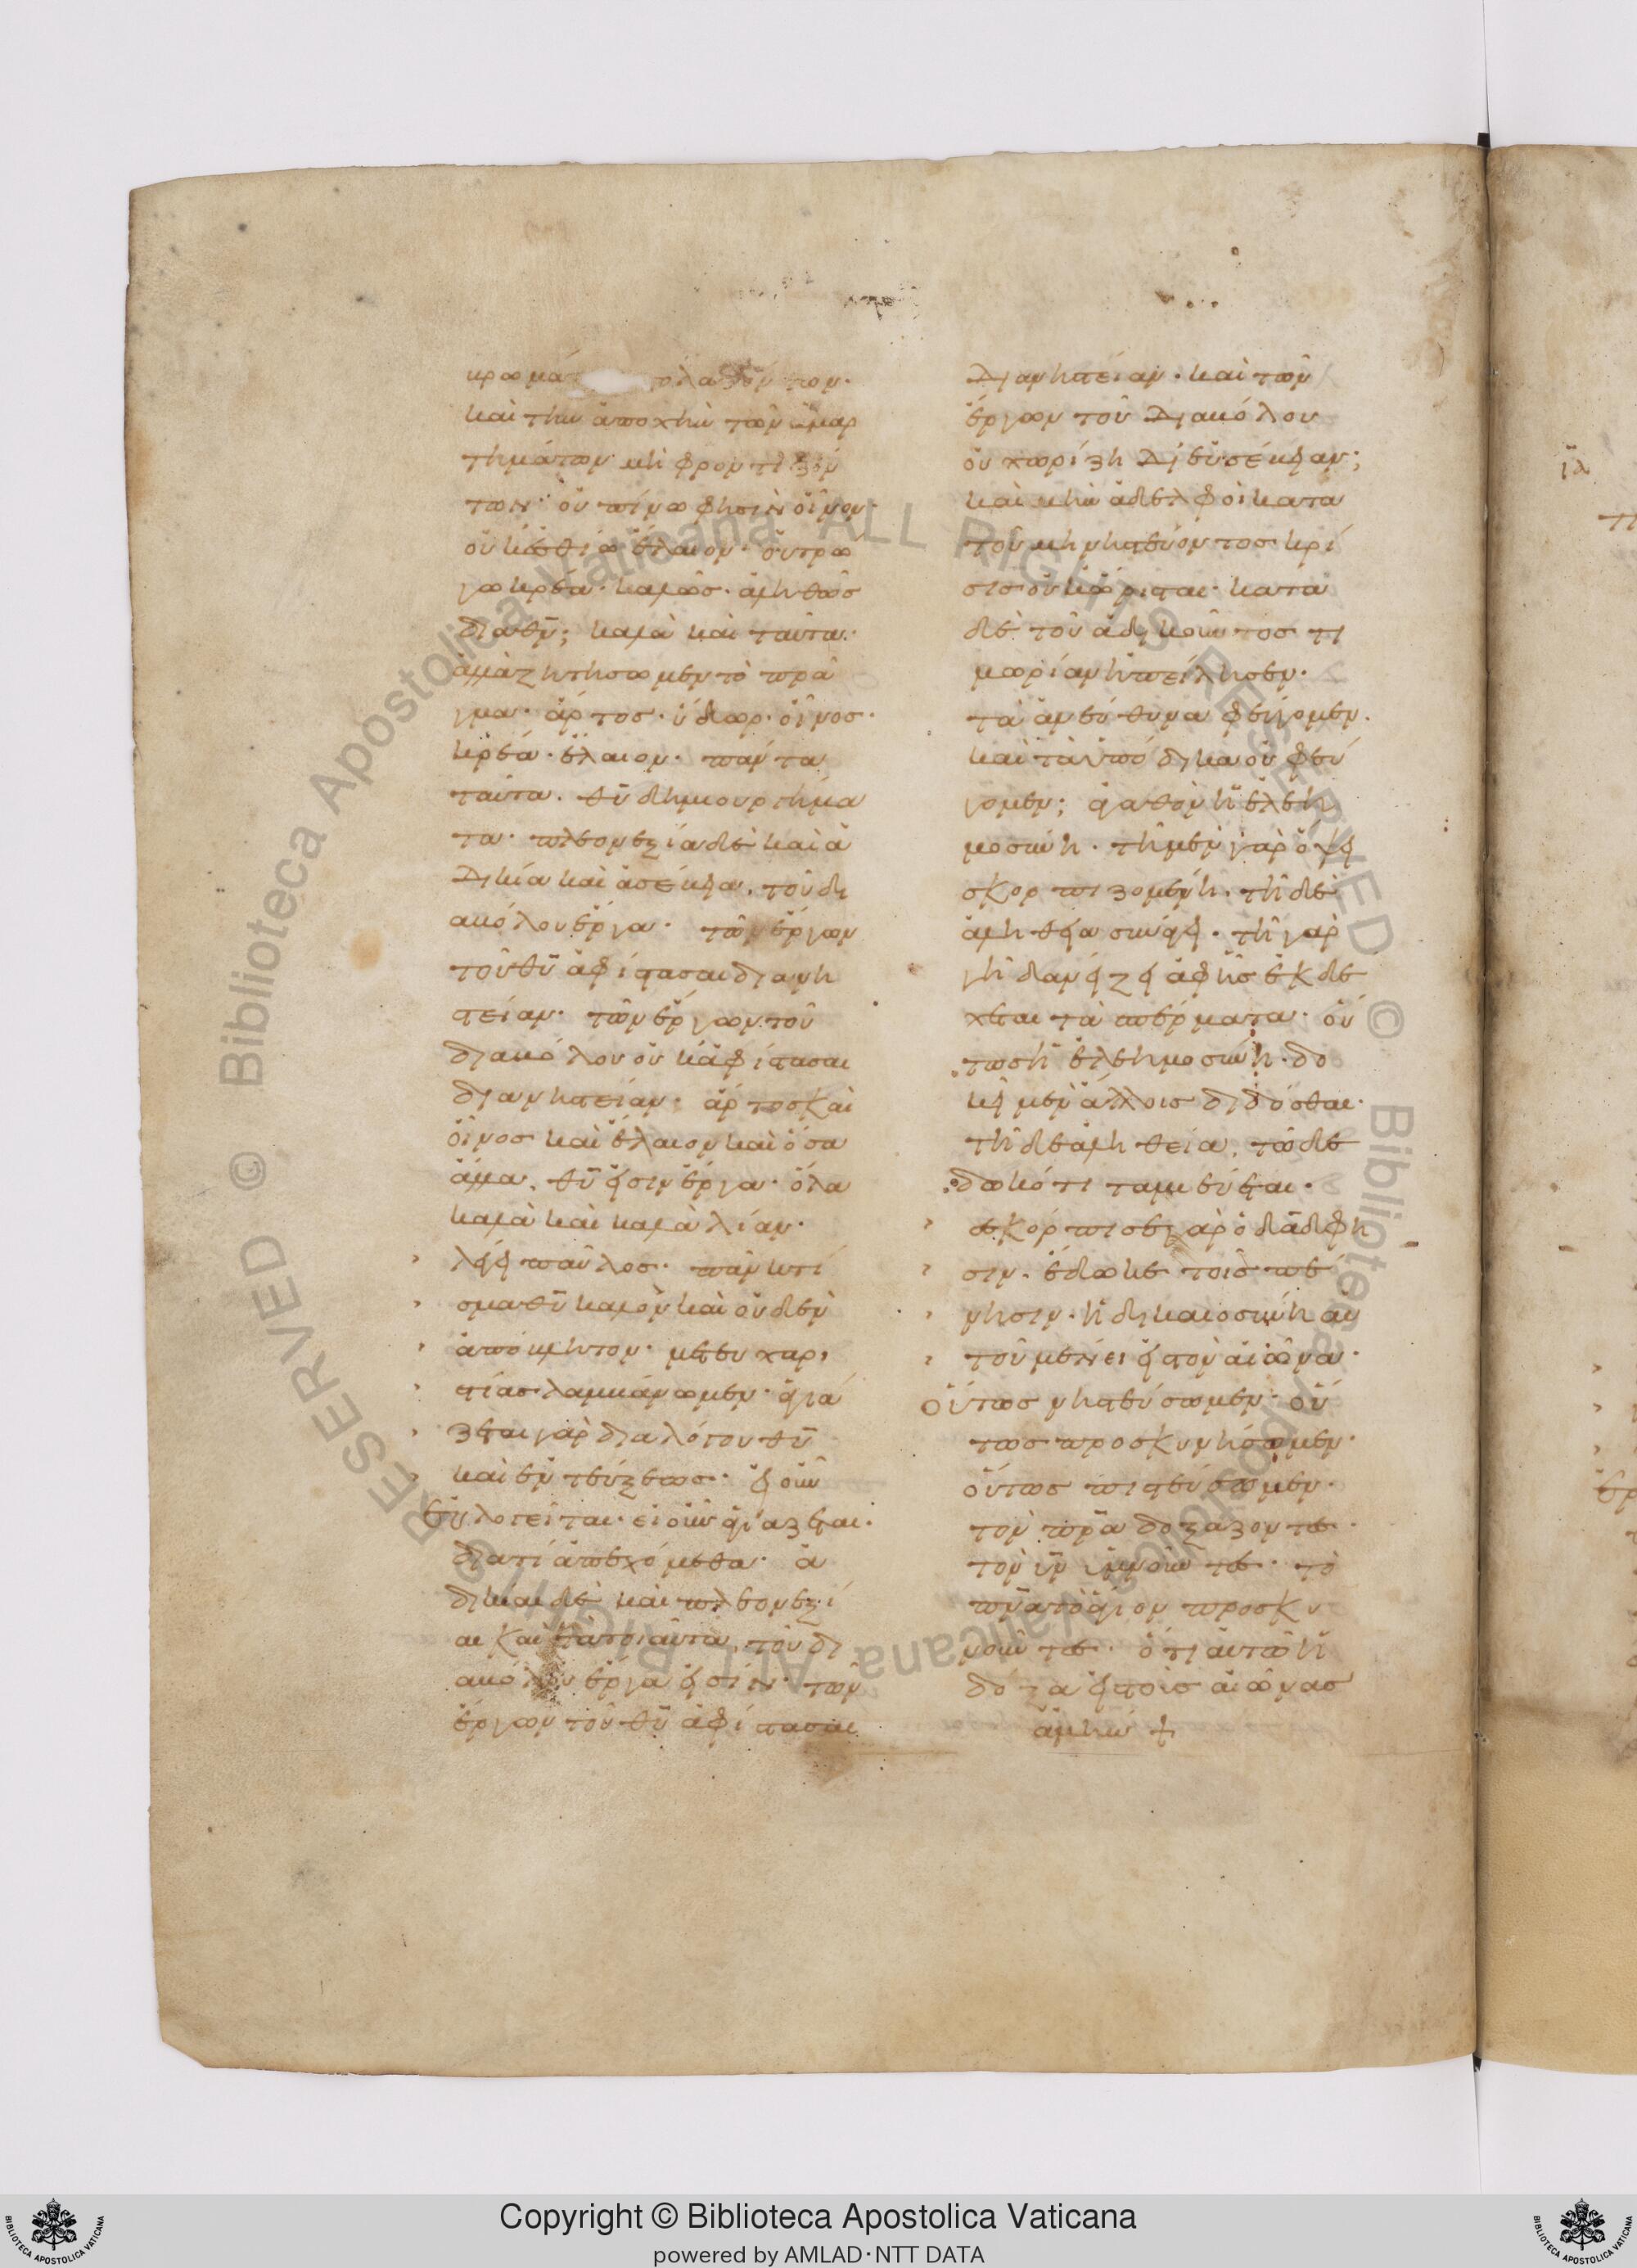 καὶ τὴν ἀποχὴν τῶν ἁμαρ
τημάτων μὴ φροντιζόν
των· οὐ πίνω φησὶν οἶνον·
οὐκ ἐσθίω ἔλαιον· οὐ τρώ
γω κρέα· καλῶς· ἀληθῶς
διατί; καλὰ καὶ ταῦτα·
ἀλλὰ ζητήσωμεν τὸ πρᾶ
γμα· ἄρτος· ὕδωρ· οἶνος·
κρέα· ἔλαιον· πάντα
ταῦτα. θῡ δημιουργήμα
τα· πλεονεξία δὲ καὶ ἀ
δικία καὶ ἀσέβεια. τοῦ δι
αβόλου ἔργα· τῶν ἔργων
τοῦ θῡ ἀφίστασαι δια νη
στείαν· τῶν ἔργων τοῦ
διαβόλου οὐκ ἀφίστασαι
δια νηστείαν· ἄρτος καὶ
οἶνος καὶ ἔλαιον καὶ ὅσα
ἄλλα. θῡ εἰσιν ἔργα· ὅλα
καλὰ καὶ καλὰ λίαν·
λέγει παῦλος· πᾶν κτί
σμα θῡ καλὸν καὶ οὐδὲν
ἀπόβλητον· μετ εὐχαρι
στίας λαμβάνωμεν· ἁγιά
ζεται γὰρ δια λόγου θῡ
καὶ ἐντεύξεως· εἰ οὖν
εὐλογεῖται· εἰ οὖν ἁγιαζεται·
διατί ἀπεχόμεθα· ἄ
δικαι δὲ καὶ πλεονεξί
αι καὶ τὰ τοιαῦτα, τοῦ δι
αβόλου ἔργα εἰσίν· τῶν
ἔργων τοῦ θῡ ἀφίστασαι
δια νηστείαν· καὶ τῶν
ἔργων τοῦ διαβόλου
οὐ χωρίζη δι εὐσέβειαν;
καὶ μὴν ἀδελφοὶ κατα
τοῦ μὴ νηστεύοντος κρί
σις οὐχ ὥρισται· κατα
δὲ τοῦ ἀδικοῦντος τι
μωρίαν ἠπείλησεν·
τὰ ἀνεύθυνα φεύγομεν.
καὶ τὰ ὑπόδικα οὐ φεύ
γομεν; ἀγαθὸν ἡ ἐλεη
μοσύνη· τῆ μὲν γὰρ ὄψει
σκορπιζομένη. τῆ δὲ
ἀληθεία συνάγει· τῆ γὰρ
γῆ δανείζει ἀφ ἧς ἐκδέ
χεται τὰ σπέρματα· οὕ
τως ἡ ἐλεημοσύνη· δο
κεῖ μὲν ἄλλοις δίδοσθαι·
τῆ δὲ ἀληθεία, τῶ δε
δωκότι ταμιεύεται·
σκόρπισε γὰρ ὁ δᾱδ φη
σιν· ἔδωκε τοῖς πέ
νησιν· ἡ δικαιοσύνη αὐ
τοῦ μένει εἰς τὸν αἰῶνα·
Οὕτως νηστεύσωμεν· οὕ
τως προσκυνήσωμεν·
οὕτως πιστεύσωμεν·
τὸν πρᾱ δοξαζοντες·
τὸν ῡν ὑμνοῦντες· τὸ
πνᾱ τὸ ἅγιον προσκυ
νοῦντες· ὅτι αὐτῶ ἡ
δόξα εἰς τοὺς αἰῶνας
ἀμήν +
Copyright © Biblioteca Apostolica Vaticana
powered by AMLAD·NTT DATA